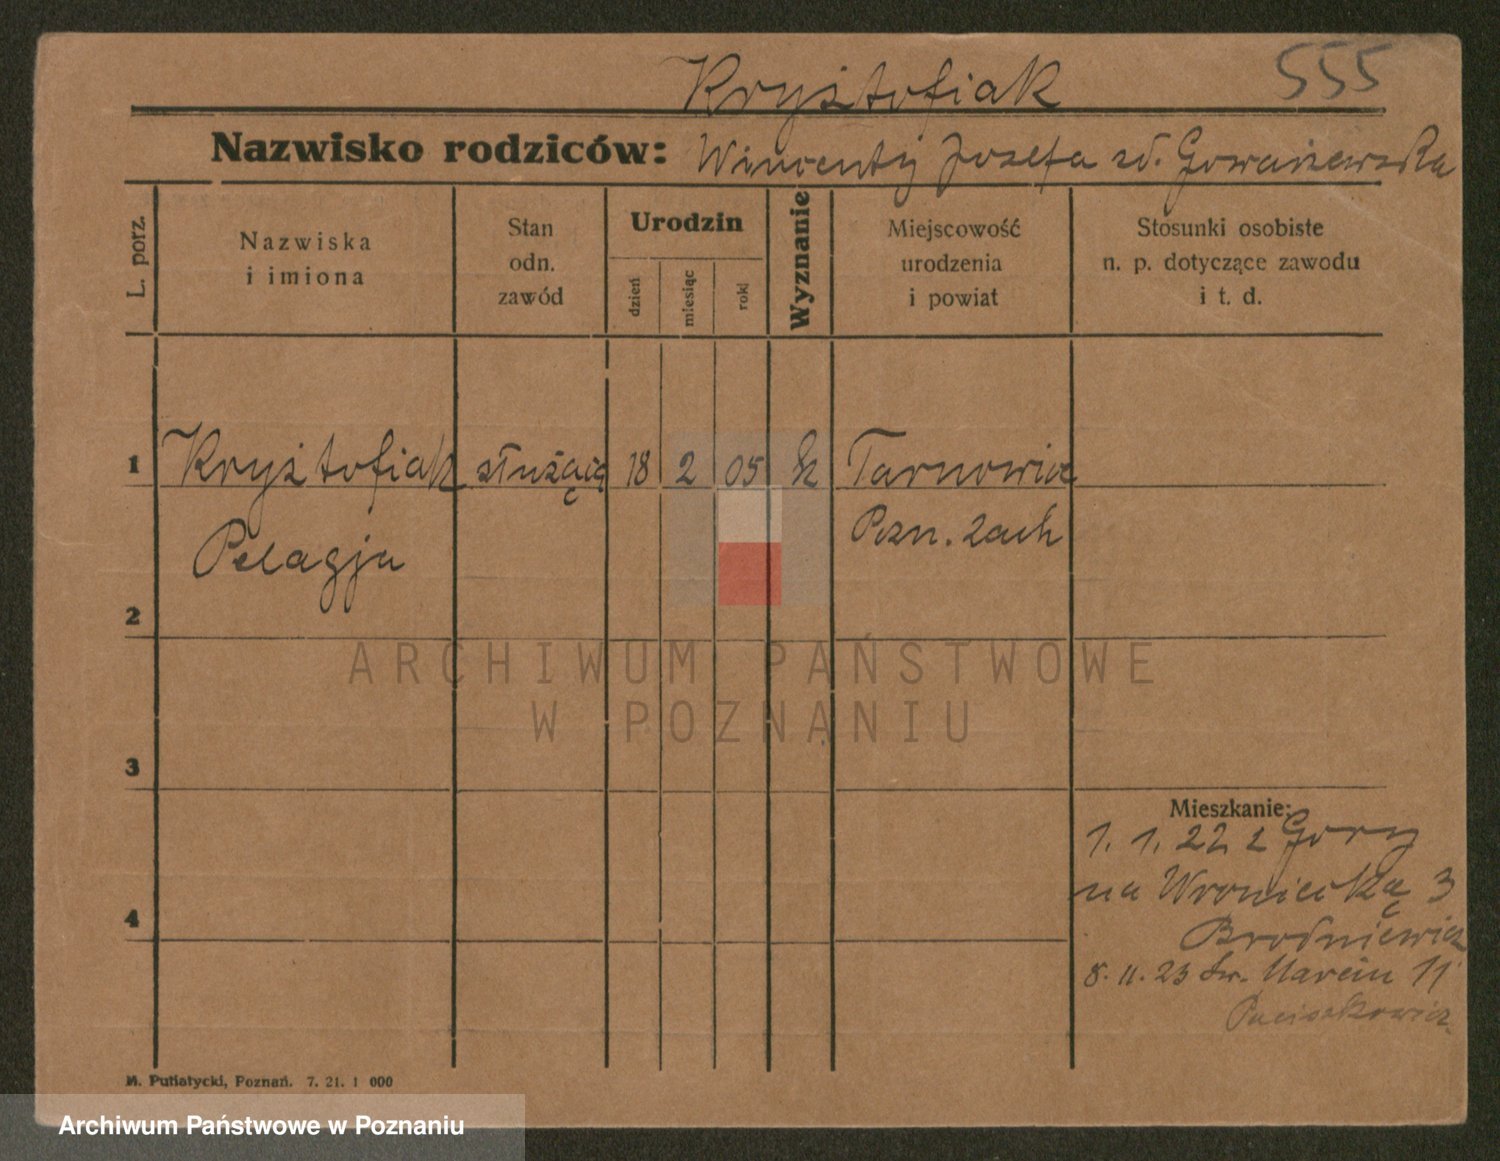 Kryżtofiak 555
Nazwisko rodziców: Wincenty Józefa zd.
L. porz.
Nazwiska
i imiona
Stan
odn.
zawód
Urodzin
dzień
miesiąc
rok
Wyznanie
Miejscowość
urodzenia
i powiat
Stosunki osobiste
n. p. dotyczące zawodu
i t. d.
1 Kryżtofiak służąca 18 2 05 k Tarnowice
Pelagja Pozn. Zach
2
3
4
Mieszkanie:
1. 1. 22 z Gory
na Wroniecką 3
Brodniewicz
8. 11. 23 Św. Marcin 11
M. Putiatycki, Poznań. 7. 21. 1 000
ARCHIWUM PAŃSTWOWE
W POZNANIU
Archiwum Państwowe w Poznaniu